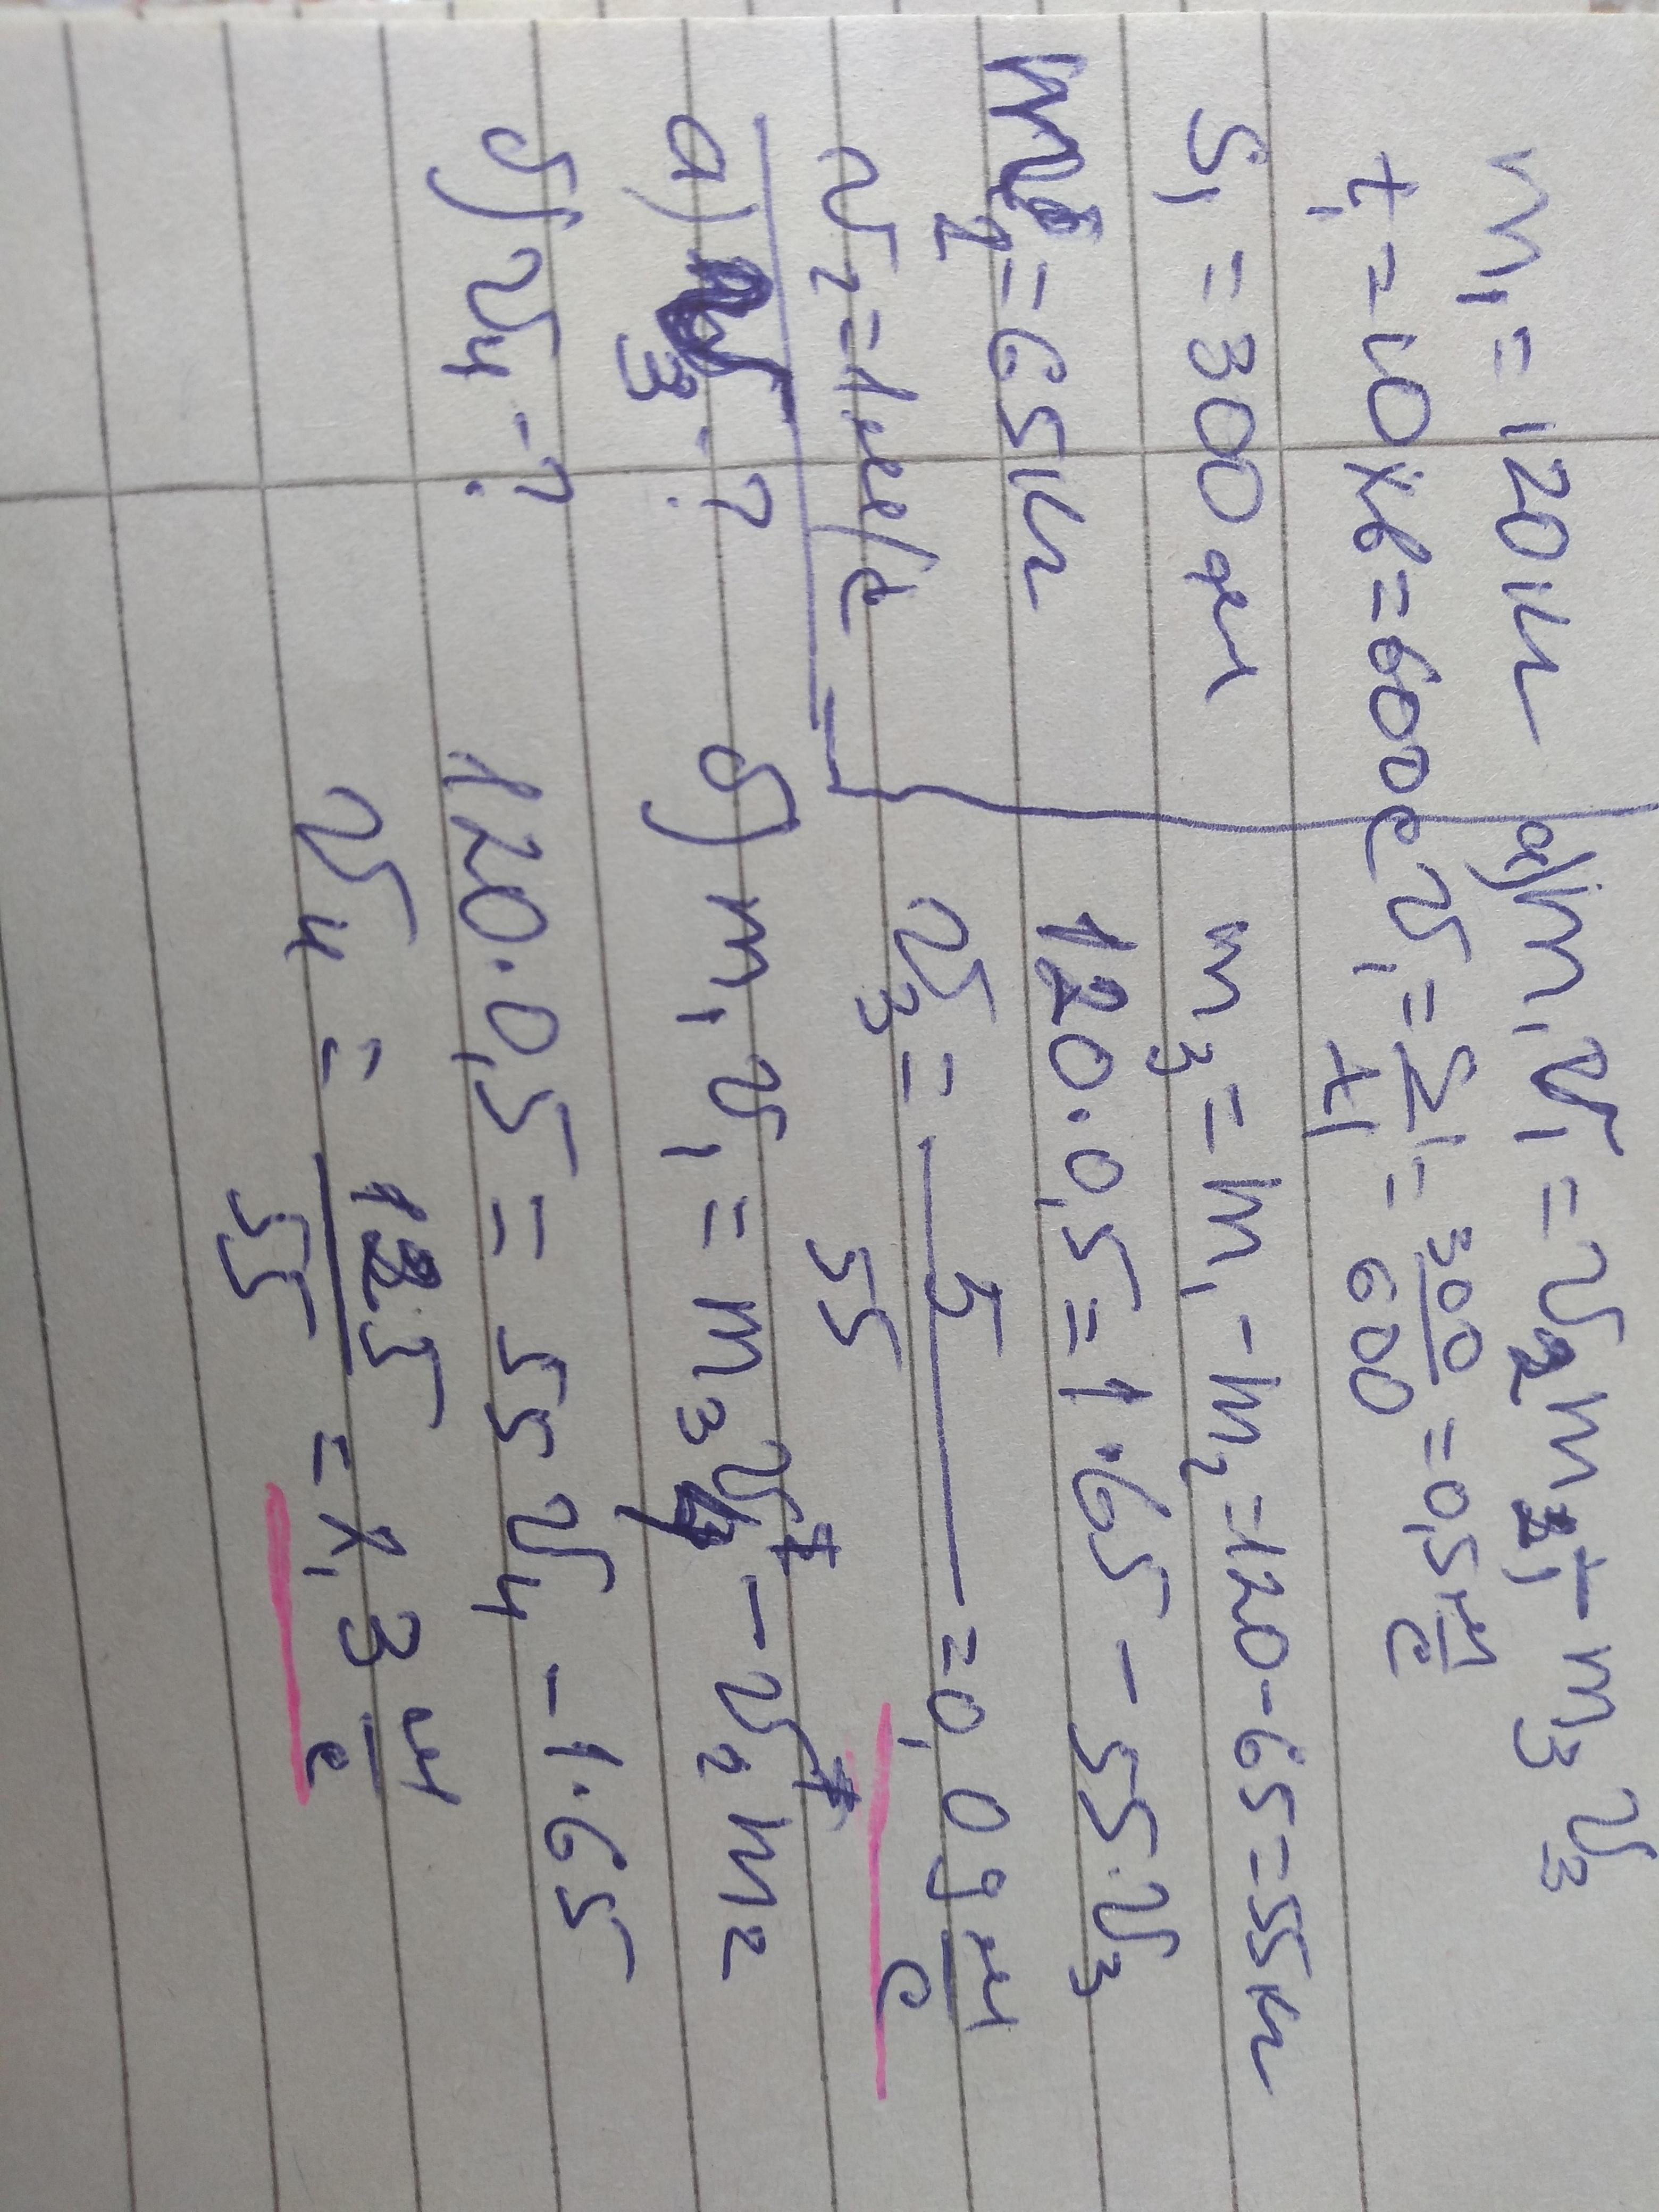 m₁ = 120 кг
t₁ = 10 хв = 600 с
S₁ = 300 м
m₂ = 65 кг
v₂ = 1 м/с
а) v₃ - ?
б) v₄ - ?
а) m₁v₁ = v₂m₂ - m₃v₃
v₁ = S₁/t₁ = 300/600 = 0,5 м/с
m₃ = m₁ - m₂ = 120 - 65 = 55 кг
120 · 0,5 = 1 · 65 - 55 · v₃
v₃ = 5/55 = 0,09 м/с
б) m₁v₁ = m₃v₄ - v₂m₂
120 · 0,5 = 55 v₄ - 1 · 65
v₄ = 125/55 = 2,3 м/с